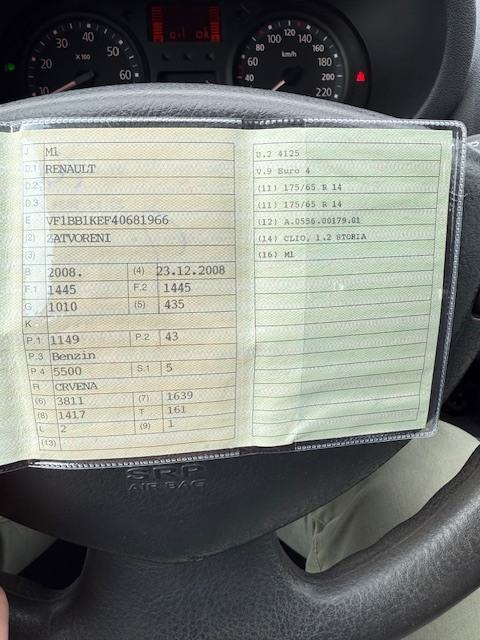 10 20 30 40 50 60
X 100
oil ok
40 60 80 100 120 140 160 180 200 220
km/h
J M1
D.1 RENAULT
D.2
D.3
E VF1BB1KEF40681966
(2) ZATVORENI
(3) –
B 2008. (4) 23.12.2008
F.1 1445 F.2 1445
G 1010 (5) 435
K
P.1 1149 P.2 43
P.3 Benzin
P.4 5500 S.1 5
R CRVENA
(6) 3811 (7) 1639
(8) 1417 T 161
L 2 (9) 1
(13)
U.2 4125
V.9 Euro 4
(11) 175/65 R 14
(11) 175/65 R 14
(12) A.0556.00179.01
(14) CLIO, 1.2 STORIA
(16) M1
SRP
AIRBAG